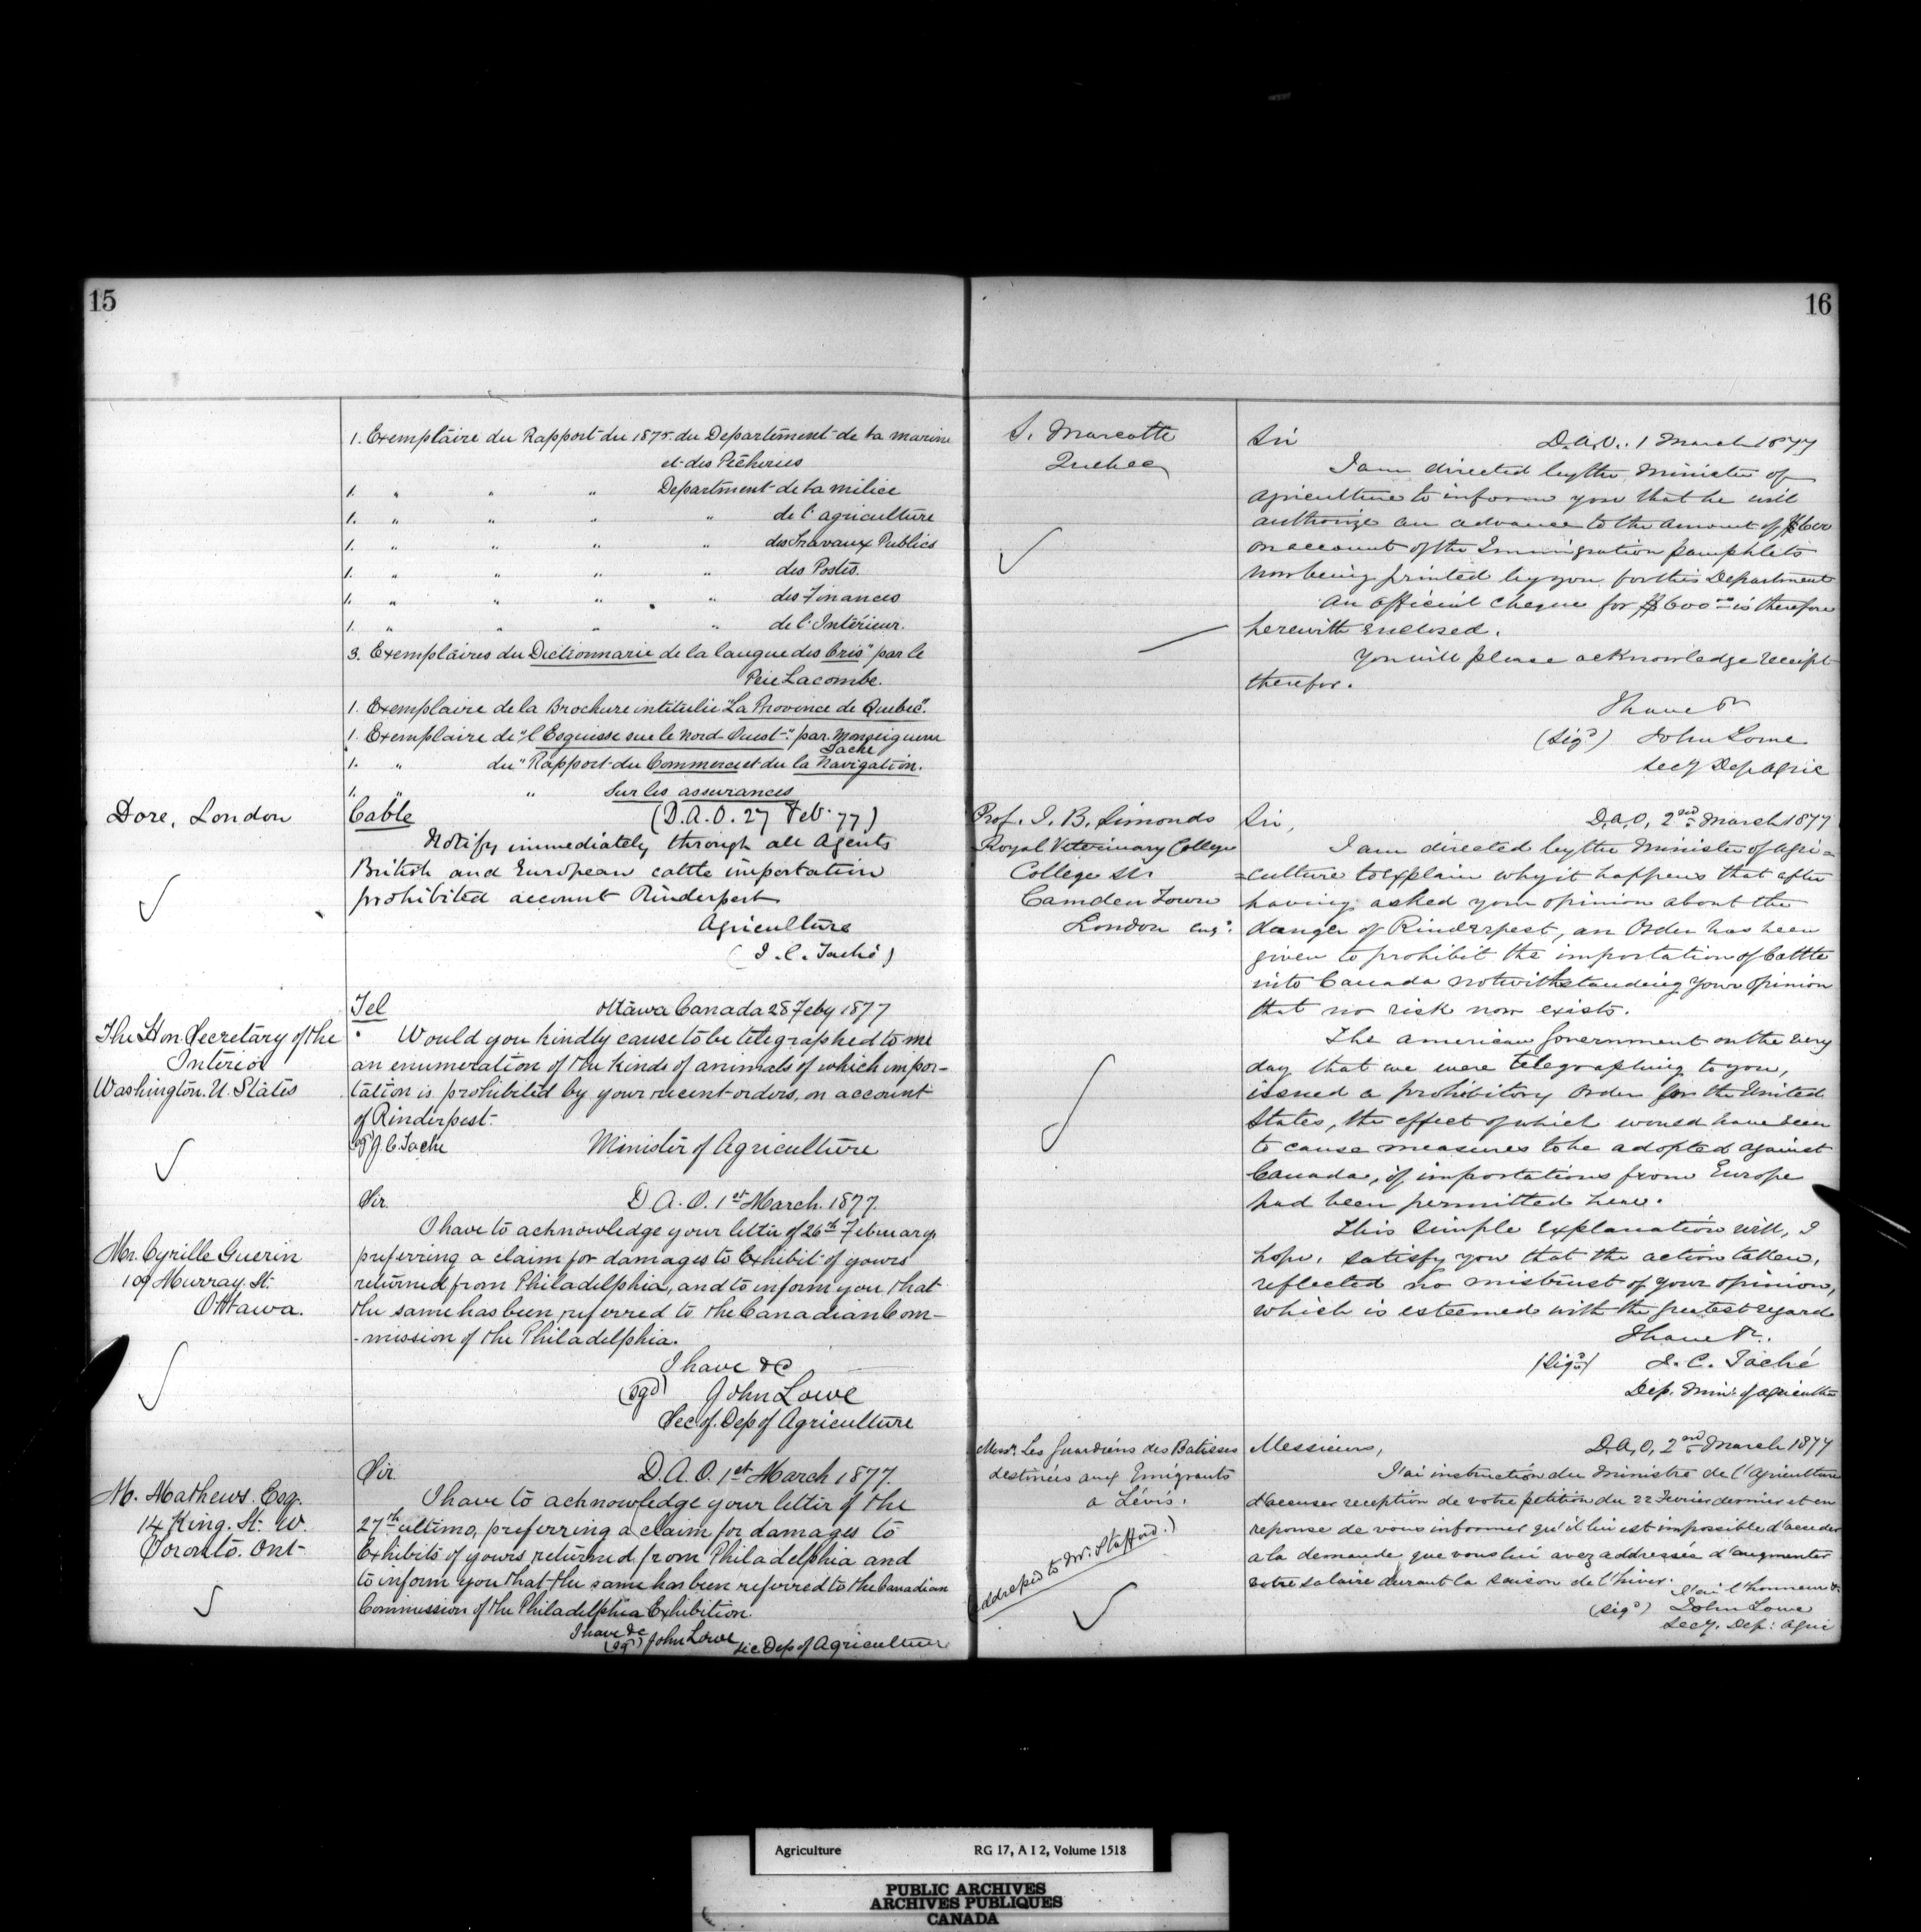 15
1. Exemplaire du Rapport du 1875 du Departement de la marine
et des Pêcheries
1. " " " Department de la milice
1. " " " " de l'agriculture
1. " " " " des Travaux Publics
1. " " " " des Postes.
1. " " " " des Finances
1. " " " " de l'Intérieur.
3. Exemplaires du Dictionnarie de la langue des Cris" par le
Père Lacombe.
1. Exemplaire de la Brochure intitulée "La Province de Quebec".
1. Exemplaire de "l'Esquisse sur le Nord-Ouest" par Monseigneur
Tache
1. " du "Rapport du Commerce et du la Navigation.
1. " " Sur les assurances
Dore, London
Cable (D.A.O. 27 Feb. 77)
Notify immediately through all Agents
British and European cattle importation
prohibited account Rinderpest
Agriculture
(J. C. Taché)
The Hon Secretary of the
Interior
Washington. U. States
Tel Ottawa Canada 28 Feby 1877
Would you kindly cause to be telegraphed to me
an enumeration of the kinds of animals of which impor-
tation is prohibited by your recent orders, on account
of Rinderpest.
(sg) J. C. Tache Minister of Agriculture
Mr. Cyrille Guerin
109 Murray St.
Ottawa.
Sir. D. A. O. 1st March. 1877.
I have to acknowledge your letter of 26th February
preferring a claim for damages to Exhibit of yours
returned from Philadelphia, and to inform you that
the same has been referred to the Canadian Com-
-mission of the Philadelphia.
I have &c
(sgd) John Lowe
Sec of Dep of Agriculture
M. Mathews. Esq.
14 King. St. W.
Toronto. Ont.
Sir. D. A. O. 1st March 1877.
I have to acknowledge your letter of the
27th ultimo, preferring a claim for damages to
Exhibits of yours returned from Philadelphia and
to inform you that the same has been referred to the Canadian
Commission of the Philadelphia Exhibition.
I have &c
(sg) John Lowe Sec Dep of Agriculture
16
S. Marcotte
Quebec
Sir D.A.O. 1 March 1877
I am directed by the Minister of
Agriculture to inform you that he will
authorize an advance to the amount of $600
on account of the Immigration pamphlets
now being printed by you for this Department
An official cheque for $600 00 is therefore
herewith enclosed.
You will please acknowledge receipt
therefor.
I have &c
(Sigd) John Lowe
Secy Dep Agric
Prof. J. B. Simonds
Royal Veterinary College
College St.
Camden Town
London Eng.
Sir, D.A.O, 2nd March 1877
I am directed by the Minister of Agri=
=culture to explain why it happens that after
having asked your opinion about the
danger of Rinderpest, an Order has been
given to prohibit the importation of Cattle
into Canada notwithstanding your opinion
that no risk now exists.
The American Government on the very
day that we were telegraphing to you,
issued a prohibitory Order for the United
States, the effect of which would have been
to cause measures to be adopted against
Canada, if importations from Europe
had been permitted here.
This simple explanation will, I
hope, satisfy you that the action taken,
reflected no mistrust of your opinion,
which is esteemed with the greatest regard
I have &c.
(Sigd) J. C. Taché
Dep. Min. of Agriculture
Messrs. Les Guardiens des Batisses
destinées aux Emigrants
a Lévis.
(Addressed to Mr. Stafford.)
Messieurs, D.A.O, 2nd March 1877
J'ai instruction du Ministre de l'Agriculture
d'accuser reception de votre petition du 22 Fevrier dernier et en
reponse de vous informer qu'il lui est impossible d'acceder
a la demande que vous lui avez addressée d'augmenter
votre salaire durant la saison de l'hiver.
J'ai l'honneur &
(Sigd) John Lowe
Secy. Dep: Agri
Agriculture RG 17, A I 2, Volume 1518
PUBLIC ARCHIVES
ARCHIVES PUBLIQUES
CANADA